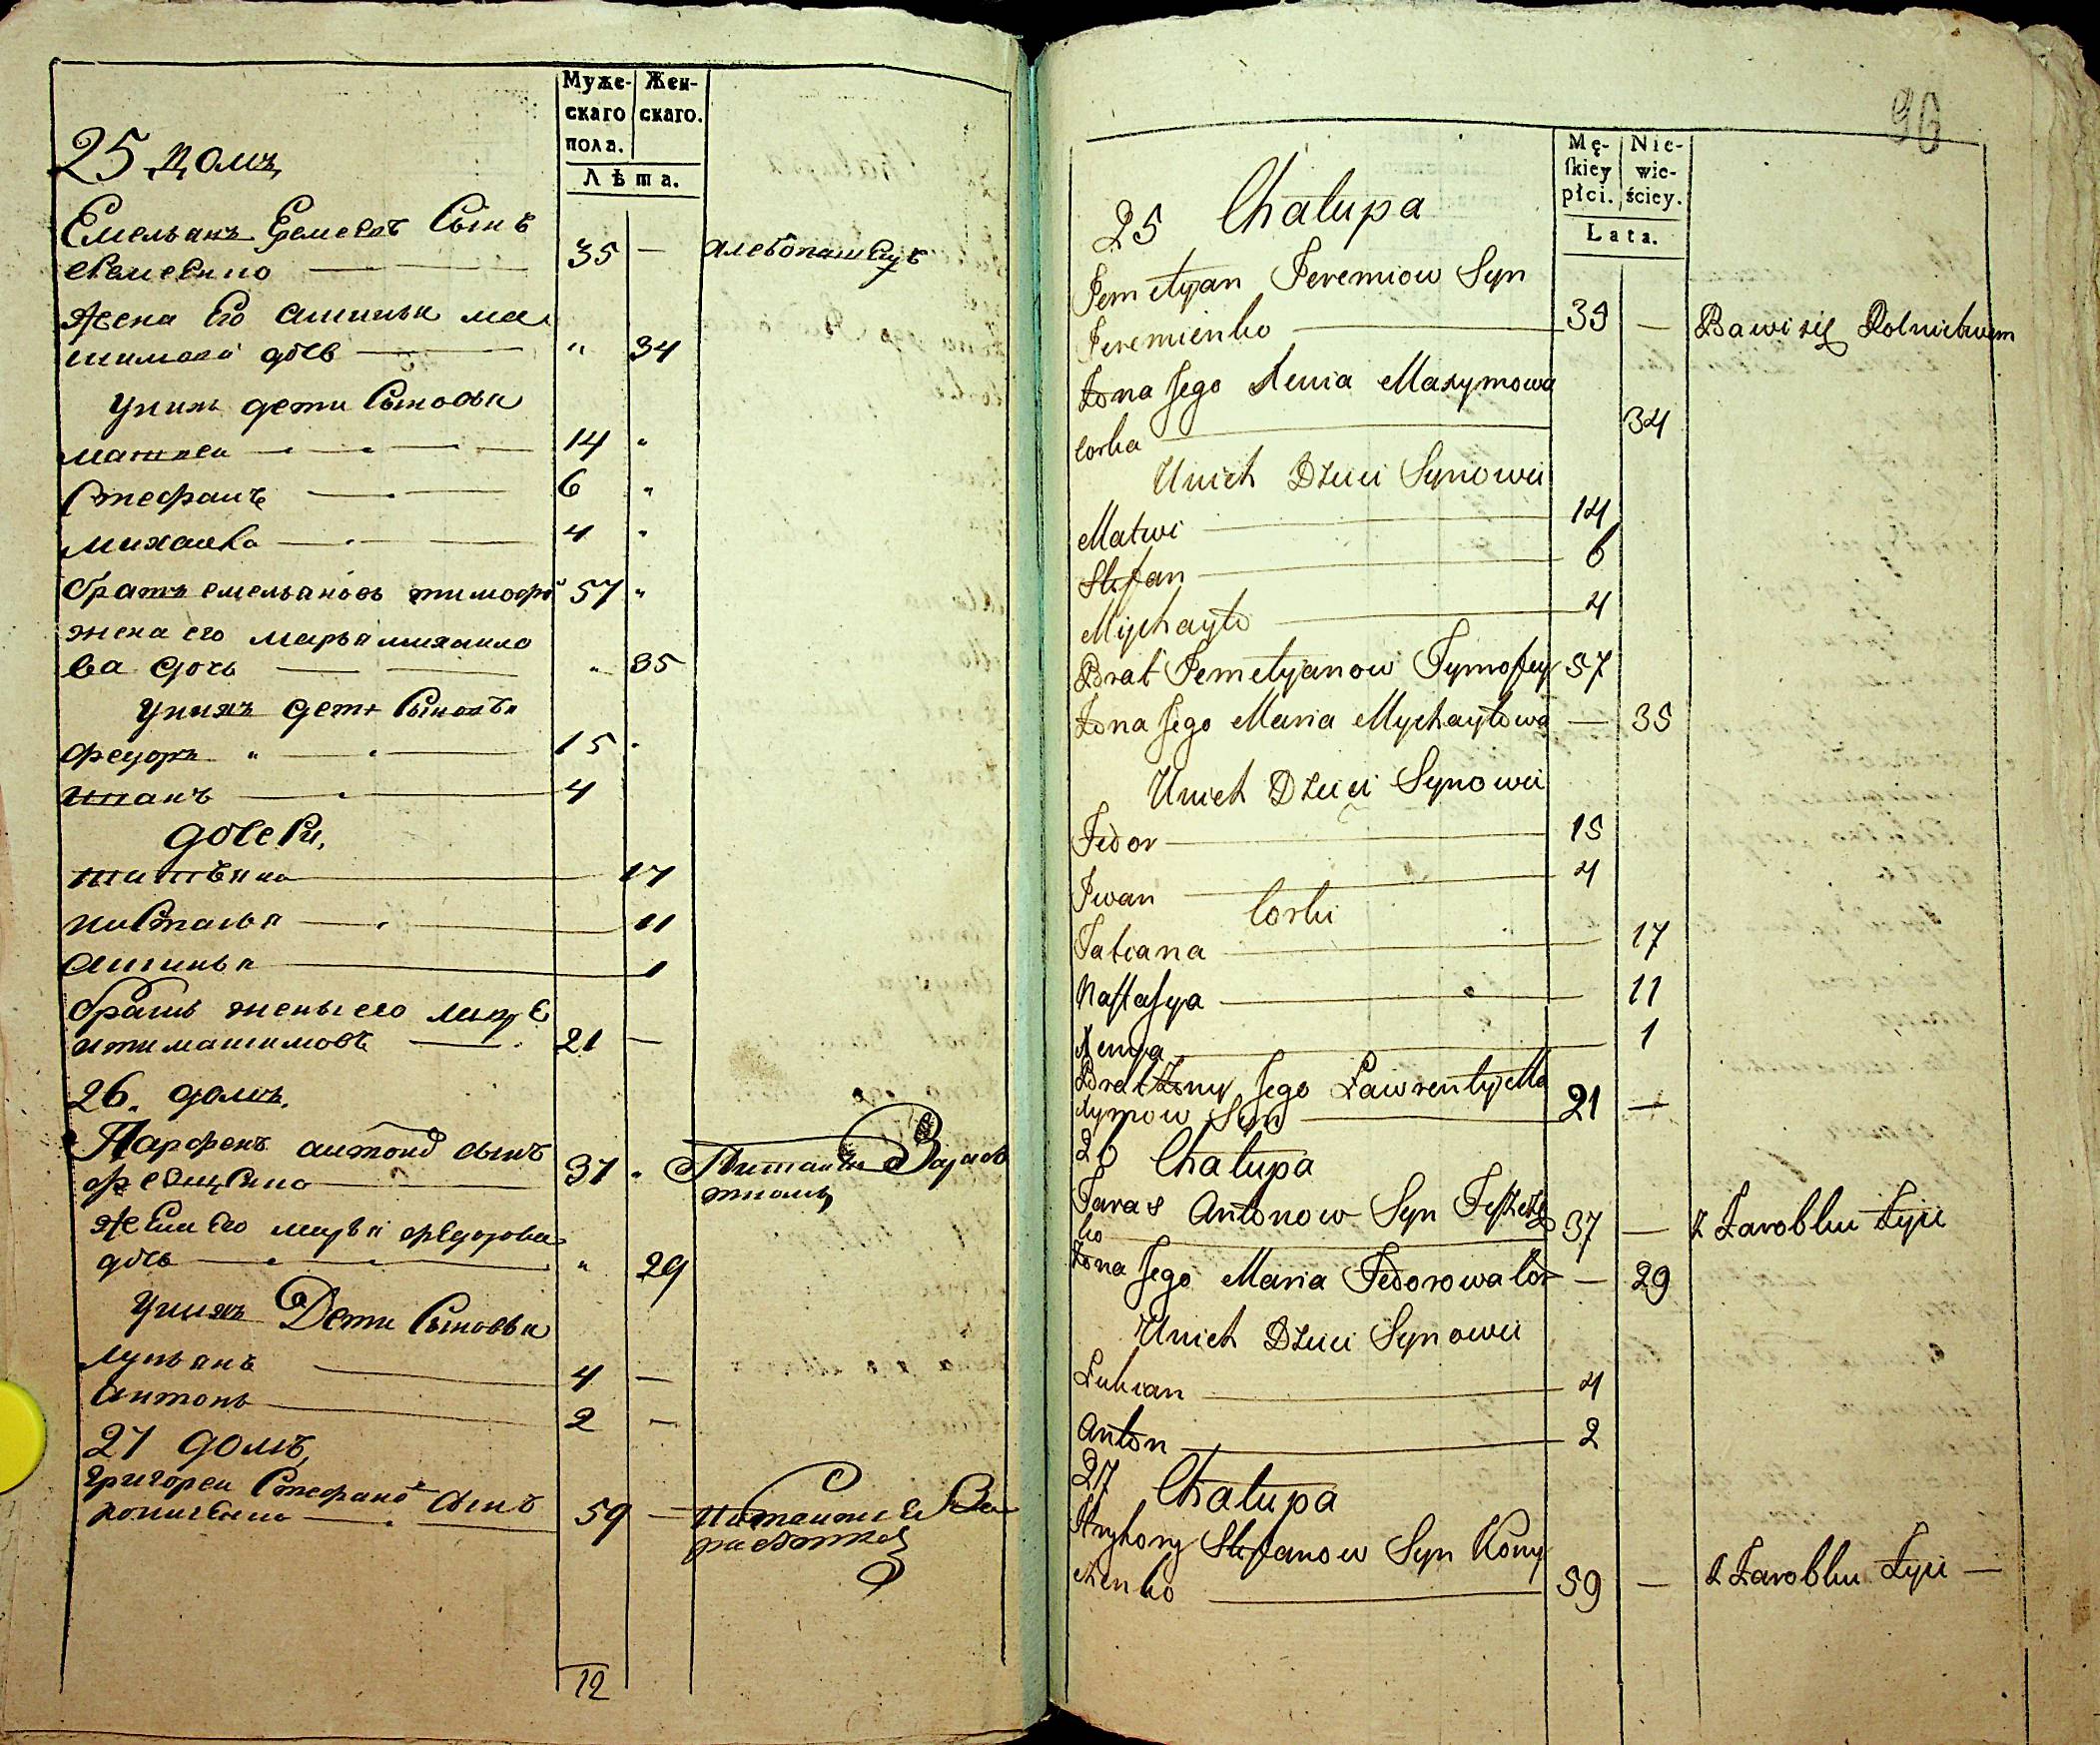 Муже-
скаго
пола.
Жен-
скаго.
Лѣта.
25 домъ
Емельянъ Еремеевъ Сынъ
35 —
жена Его Аксинья Ма
ксимова дочь — " 34
Унихъ дети Сыновья
Матвеи — 14 "
Стефанъ — 6 "
Михаила — 4 "
братъ емельяновъ тимофей 57 "
жена его марья михаило
ва дочь — " 35
Унихъ дети Сыновья
Федоръ " — 15 "
Иванъ — 4
дочери,
татьяна — 17
Настасья — 11
Аксинья — 1
братъ жены его
21 —
26. домъ.
Парфенъ антонов сынъ
37 "
жена Его марья федорова
дочь — " 29
Унихъ Дети Сыновья
Лукьянъ — 4 —
Антонъ — 2 —
27 домъ,
Григореи Стефанов сынъ
59 —
12
90
Mę-
skiey
płci.
Nie-
wie-
ściey.
Lata.
25 Chałupa
Jemelyan Jeremiow Syn
Jeremienko — 35 — Bawi się Rolnictwem
Żona Jego Xenia Maxymowa
corka — 34
Unich Dzieci Synowie
Matwi — 14
Stefan — 6
Mychayło — 4
Brat Jemelyanow Tymofey 57
Żona Jego Maria Mychayłowa — 35
Unich Dzieci Synowie
Fedor — 15
Iwan — 4
Corki
Tatiana — 17
Nastasya — 11
Xenya — 1
Brat Żony Jego Ławrenty Ma
xymow Syn — 21 —
26 Chałupa
Taras Antonow Syn
ko — 37 — z Zarobku żyie
Żona Jego Maria Fedorowa Cor — 29
Unich Dzieci Synowie
Lukian — 4
Anton — 2
27 Chałupa
Hryhory Stefanow Syn Kony
chenko — 59 — z Zarobku żyie —